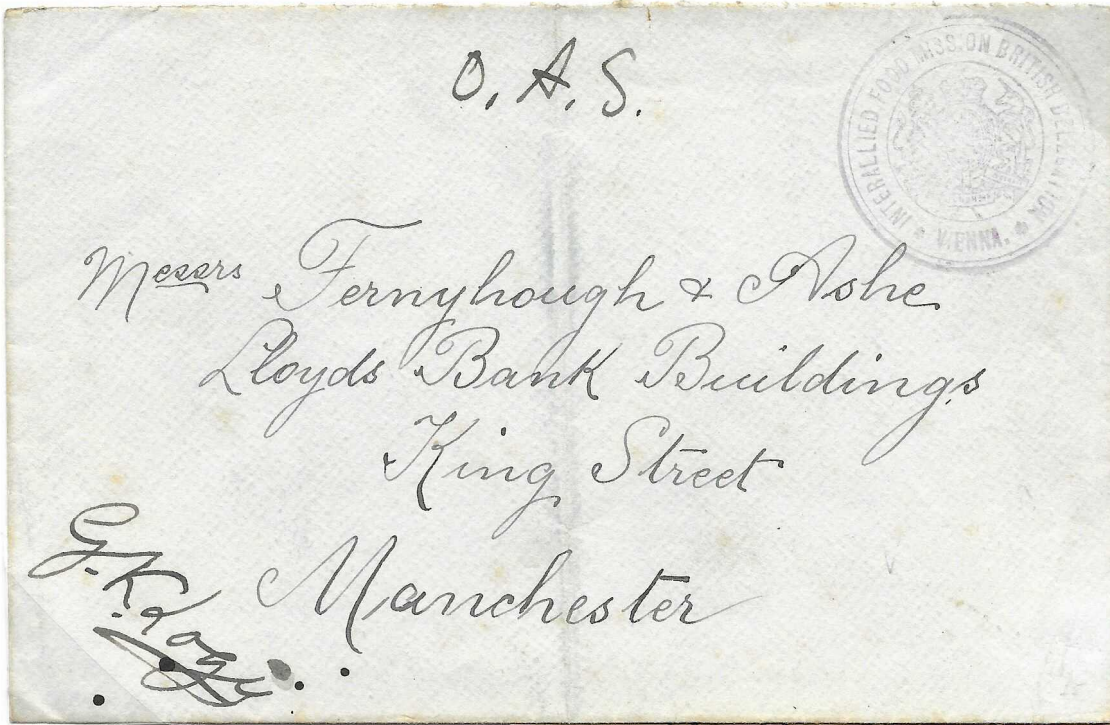 O. A. S.
INTERALLIED FOOD MISSION BRITISH DELEGATION
VIENNA.
Messrs Fernyhough & Ashe
Lloyds Bank Buildings
King Street
Manchester
G. K.